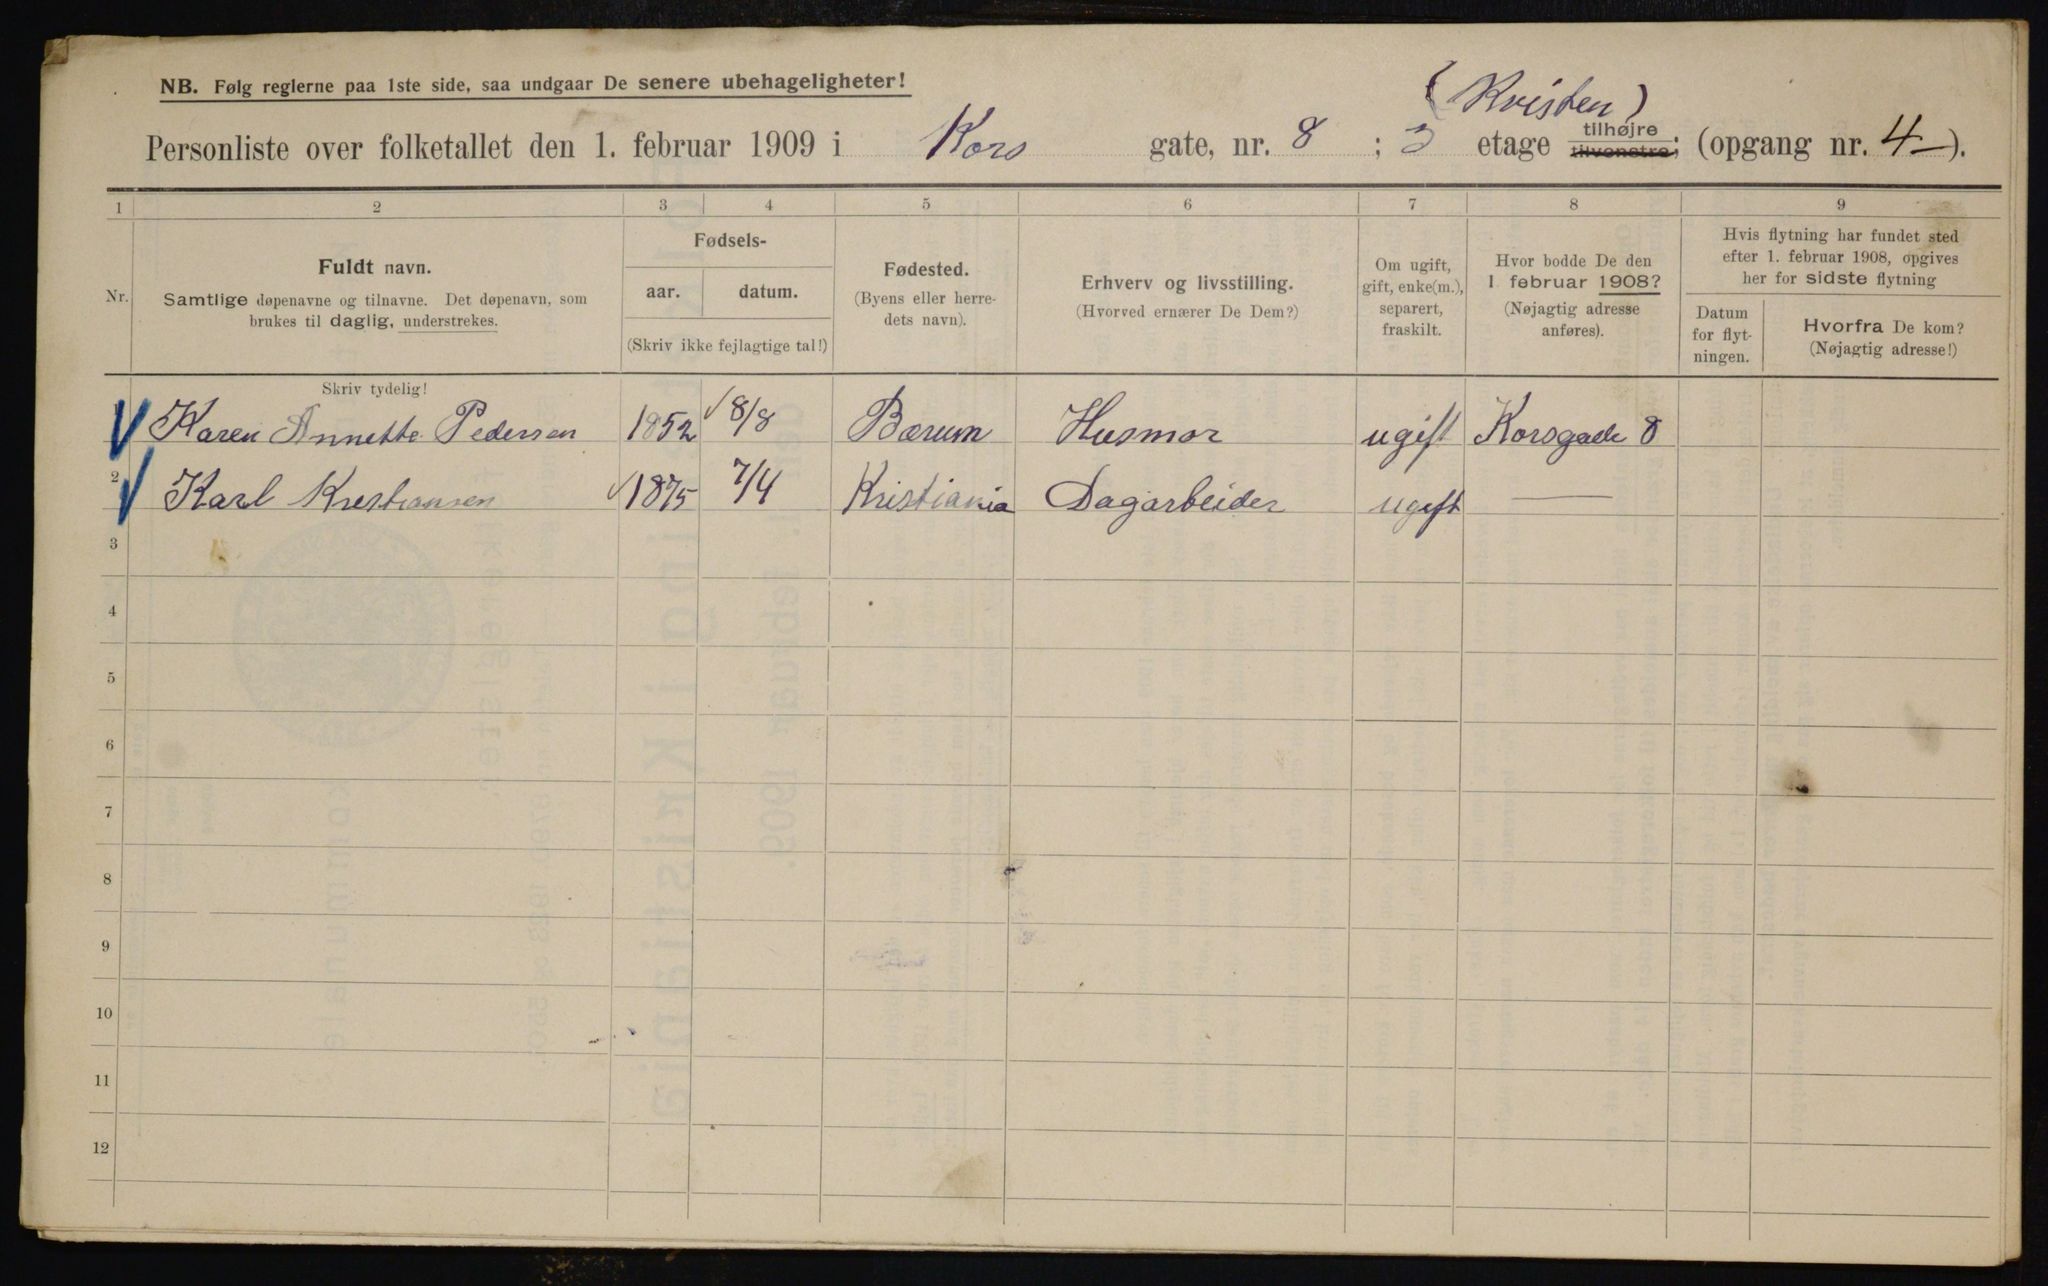 NB. Følg reglerne paa 1ste side, saa undgaar De senere ubehageligheter!
(Kvisten)
Personliste over folketallet den 1. februar 1909 i Kors gate, nr. 8 ; 3 etage tilhøjre tilvenstre; (opgang nr. 4 ).
1 2 3 4 5 6 7 8 9
Nr.
Fuldt navn.
Samtlige døpenavne og tilnavne. Det døpenavn, som
brukes til daglig, understrekes.
Fødsels-
aar. datum.
(Skriv ikke fejlagtige tal!)
Fødested.
(Byens eller herre-
dets navn).
Erhverv og livsstilling.
(Hvorved ernærer De Dem?)
Om ugift,
gift, enke(m.),
separert,
fraskilt.
Hvor bodde De den
1. februar 1908?
(Nøjagtig adresse
anføres).
Hvis flytning har fundet sted
efter 1. februar 1908, opgives
her for sidste flytning
Datum
for flyt-
ningen.
Hvorfra De kom?
(Nøjagtig adresse!)
Skriv tydelig!
1 Karen Annette Pedersen 1852 8/8 Bærum Husmor ugift Korsgade 8
2 Karl Kristiansen 1875 7/4 Kristiania Dagarbeider ugift —
3
4
5
6
7
8
9
10
11
12